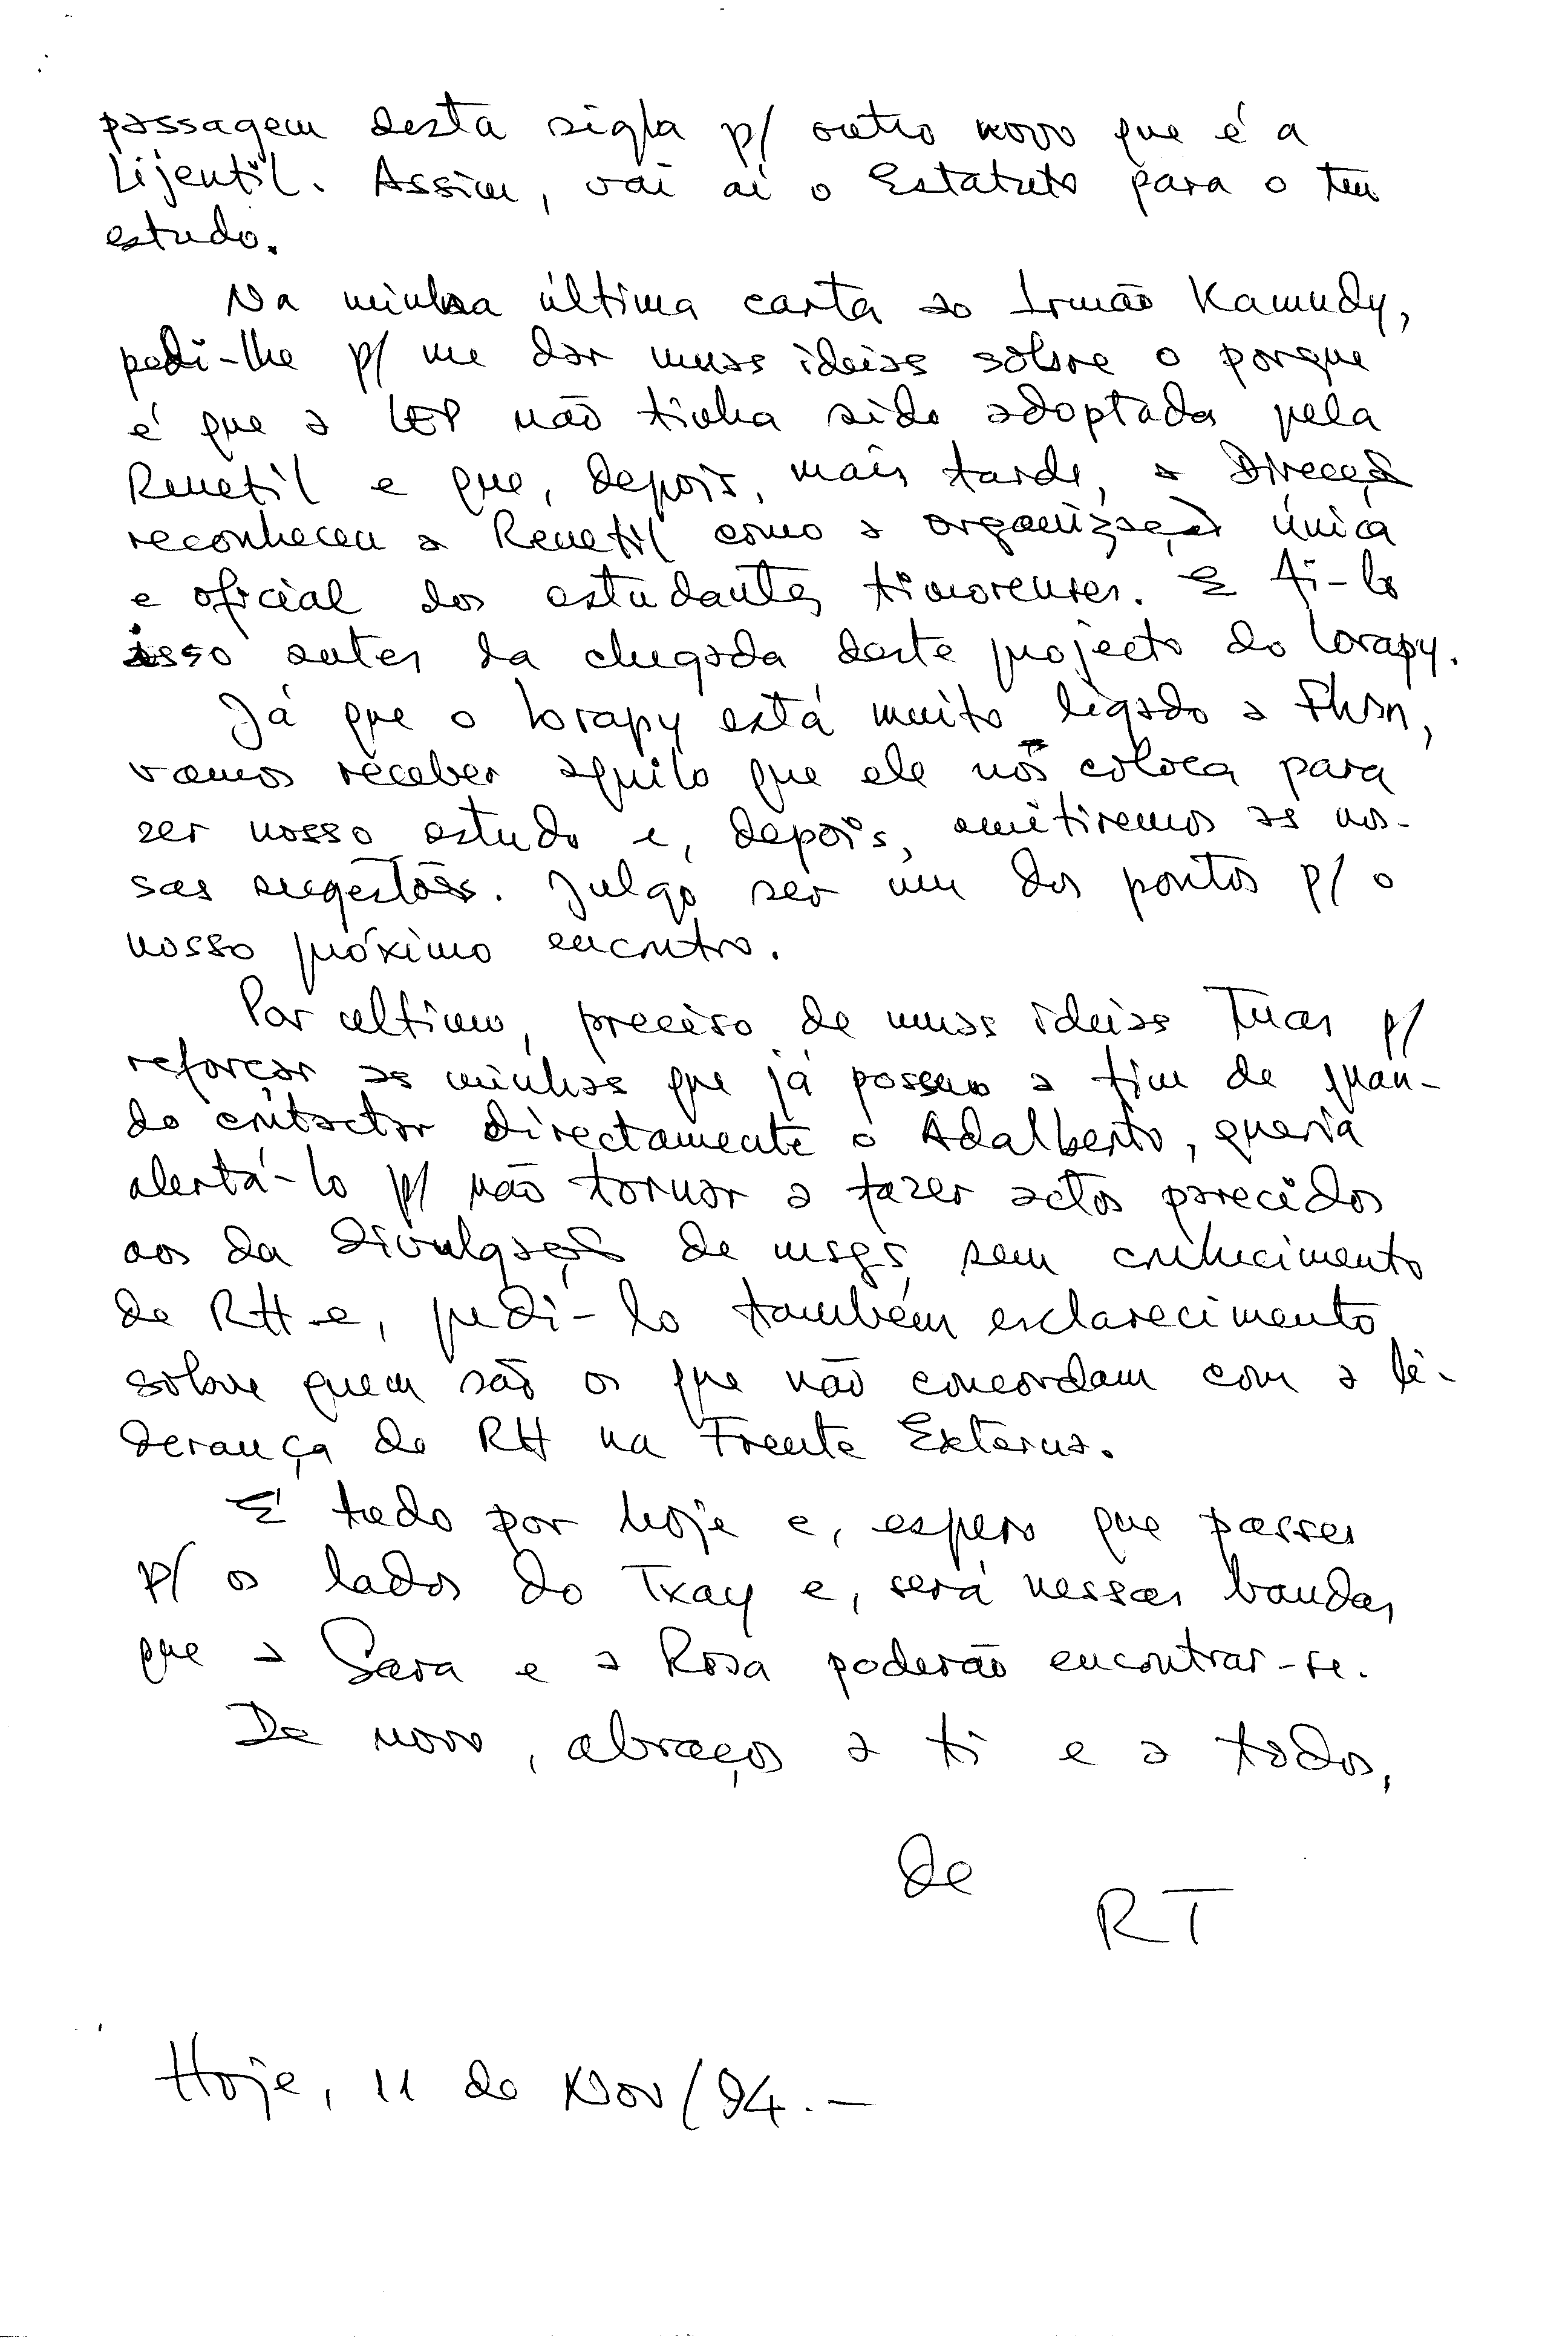 passagem desta sigla p/ outro novo que é a
Lijentil. Assim, vai aí o Estatuto para o teu
estudo.
Na minha última carta ao Irmão Kamudy,
pedi-lhe p/ me dar umas ideias sobre o porque
é que a LEP não tinha sido adoptada pela
Renetil e que, depois, mais tarde, a Direcção
reconheceu a Renetil como a organização única
e oficial dos estudantes timorenses. E fi-lo
isso antes da chegada deste projecto do Lorapy.
Já que o Lorapy está muito ligado a
vamos receber aquilo que ele nos coloca para
ser nosso estudo e, depois, emitiremos as nos-
sas sugestões. Julgo ser um dos pontos p/ o
nosso próximo encontro.
Por ultimo, preciso de umas ideias tuas p/
reforçar as minhas que já possuo a fim de quan-
do contactar directamente o Adalberto, queria
alertá-lo p/ não tornar a fazer actos parecidos
aos da divulgação de msgs sem conhecimento
de RH e, pedi-lo também esclarecimento
sobre quem são os que não concordam com a li-
derança de RH na Frente Externa.
É tudo por hoje e, espero que passes
p/ os lados do Txay e, será nessas bandas
que a Sara e a Rosa poderão encontrar-se.
De novo, abraços a ti e a todos,
de
RT
Hoje, 11 de Nov/94.-